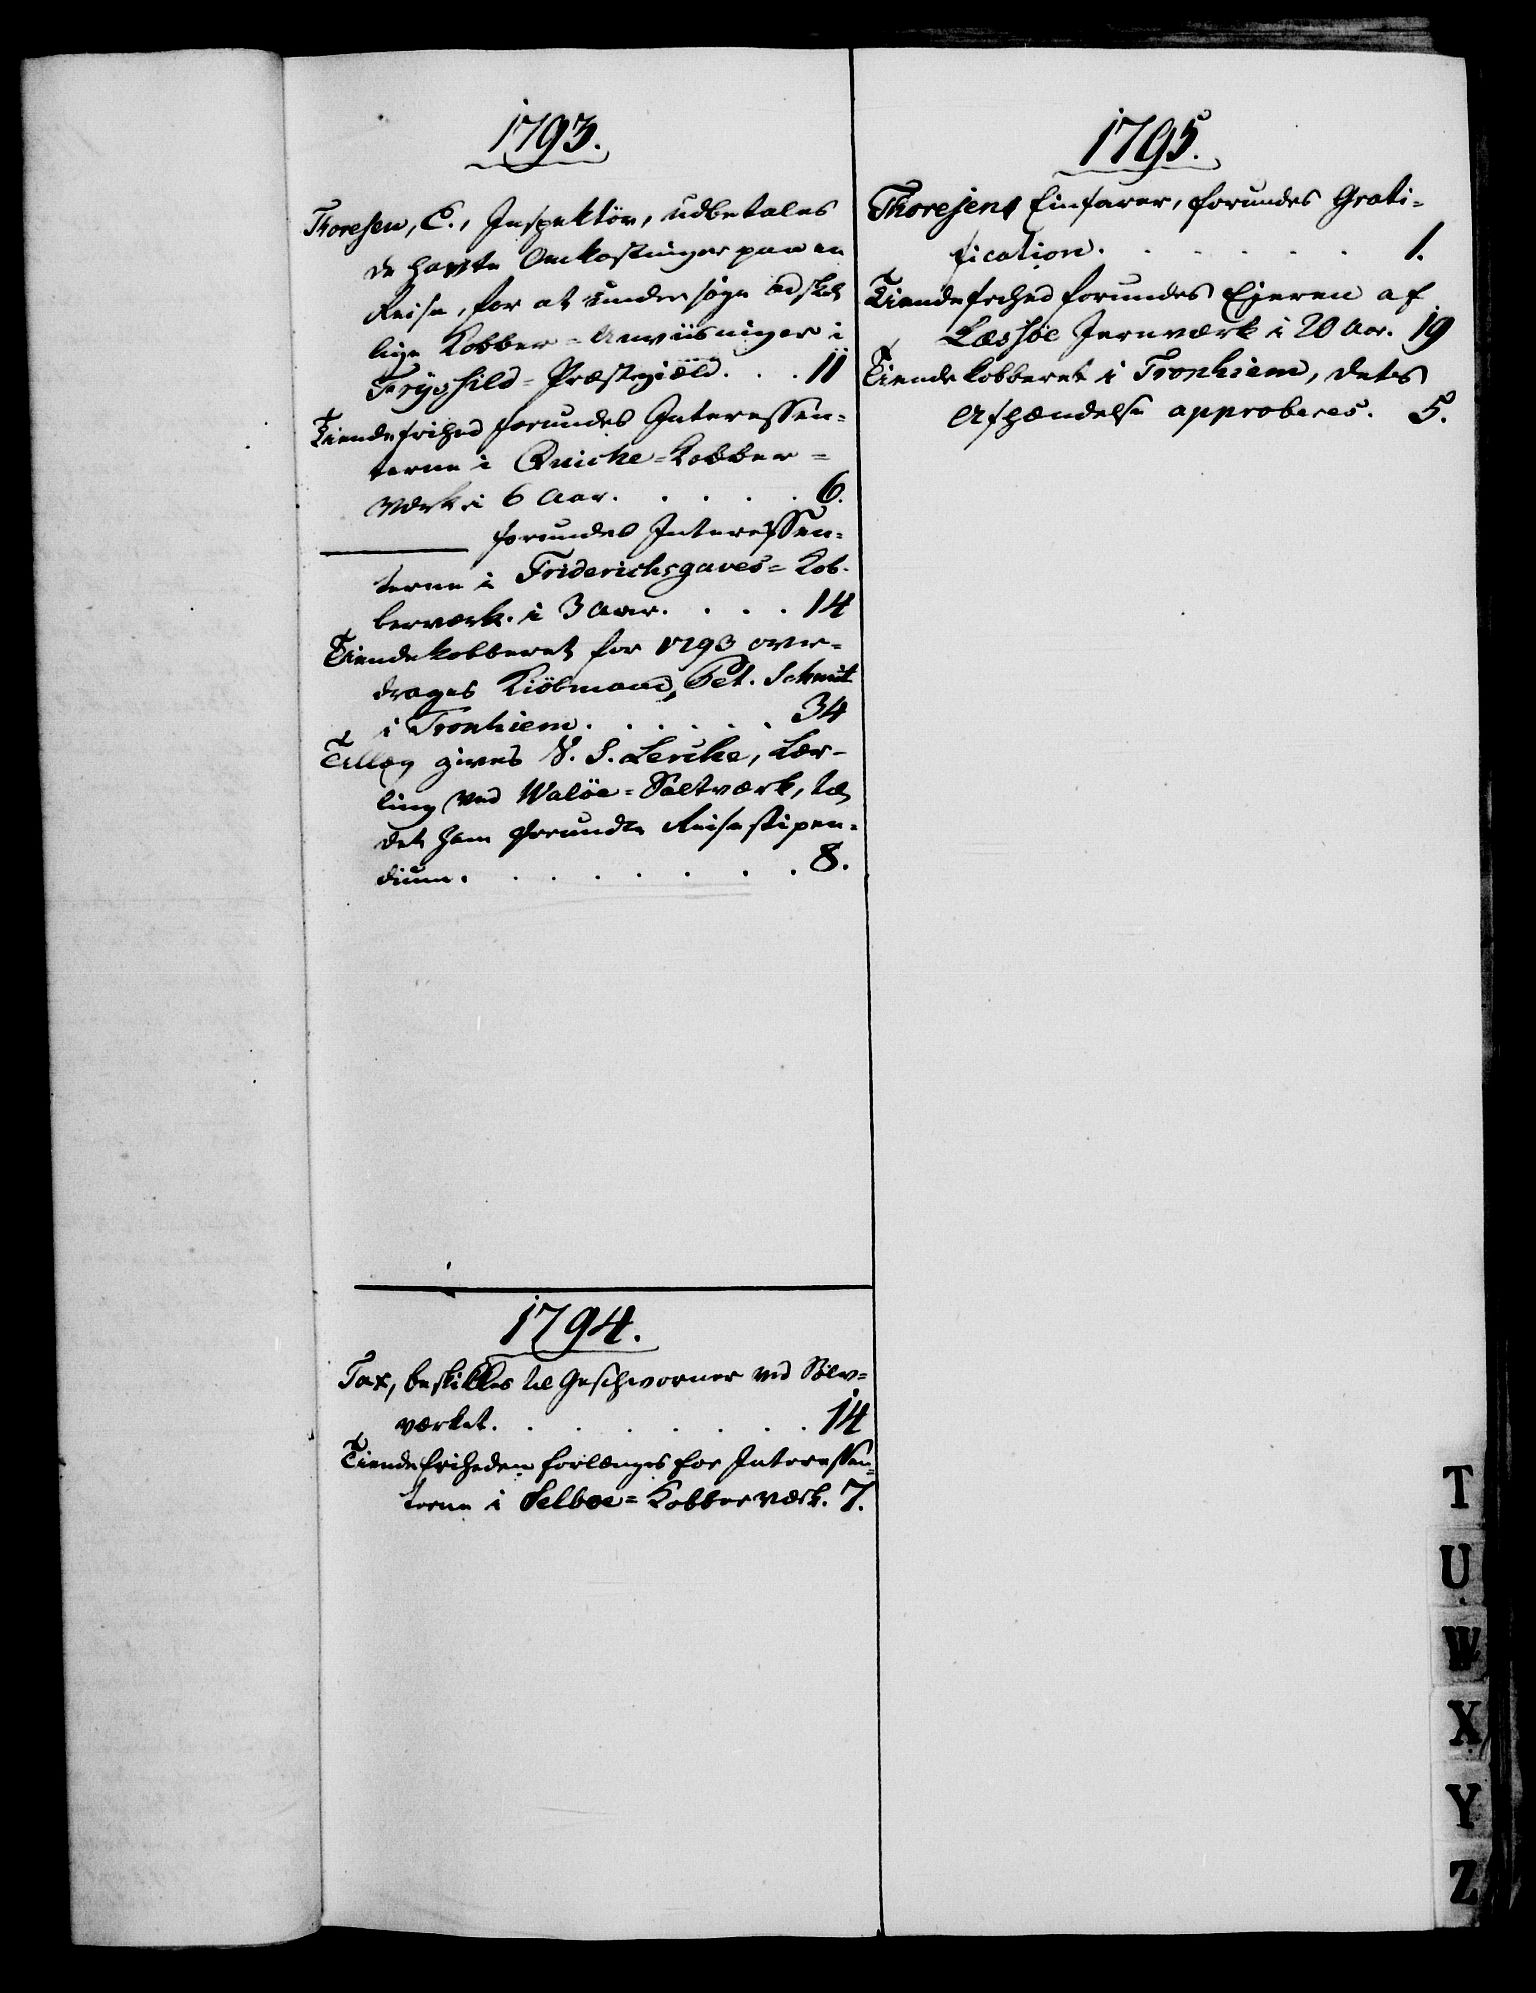 1793.
Thoresen, C., Inspektör, udbetales
de havte Omkostninger paa en
Reise, for at undersøge adskil
lige Kobber=Anviisninger i
Præstegiæld. . . 11
Tiendefrihed forundes Interessen=
terne i Quickne=Kobber=
værk i 6 Aar. . . . . 6.
——— forundes Interessen=
terne i Friderichsgaves=Kob=
berværk. i 3 Aar. . . . 14
Tiendekobberet for 1793 over=
drages Kiöbmand, Pet. Schmit
i Tronhiem. . . . . . 34
Tillæg gives N. S. Lerche, Lær=
ling ved Walöe=Saltværk, til
det ham forundte Reisestipen=
dium. . . . . . . . 8.
1794.
Tax, beskikkes til Geschworner ved Sölv=
værket. . . . . . . . 14
Tiendefriheden forlænges for Interessen=
terne i Selboe=Kobberværk. 7.
1795.
Thoresen, Einfarer, forundes Grati=
fication. . . . . . . 1.
Tiendefrihed forundes Eieren af
Læssöe Jernværk i 20 Aar. 19
Tiendekobberet i Tronhiem, dets
Afhændelse approberes. 5.
T
U
W
X
Y
Z